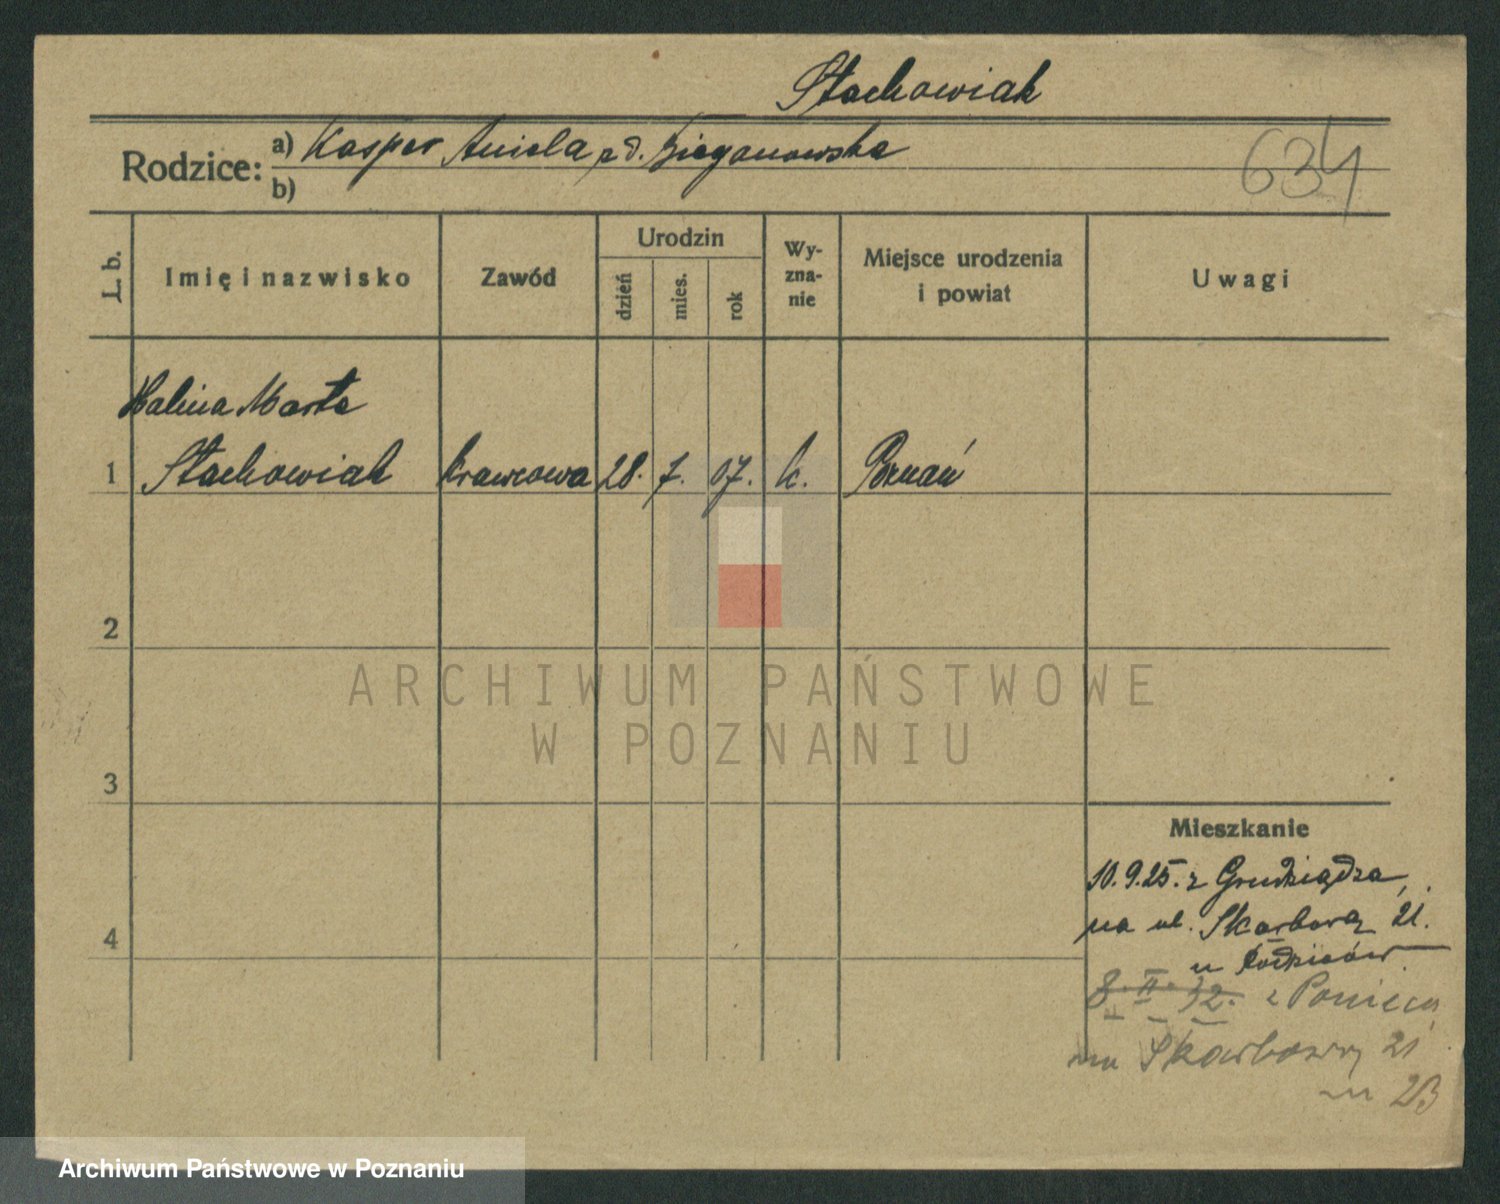 Stachowiak
Rodzice: a) Kasper Aniela zd. Bieganowska
b)
634
L. b.
Imię i nazwisko
Zawód
Urodzin
dzień
mies.
rok
Wy-
zna-
nie
Miejsce urodzenia
i powiat
Uwagi
Halina Marta
1 Stachowiak krawcowa 28. 7. 07. k. Poznań
2
3
4
ARCHIWUM PAŃSTWOWE
W POZNANIU
Mieszkanie
10.9.25. z Grudziądza,
na ul. Skarbową 21.
u rodziców
8.II.32. z Poniecu
na Skarbową 21
m 23
Archiwum Państwowe w Poznaniu